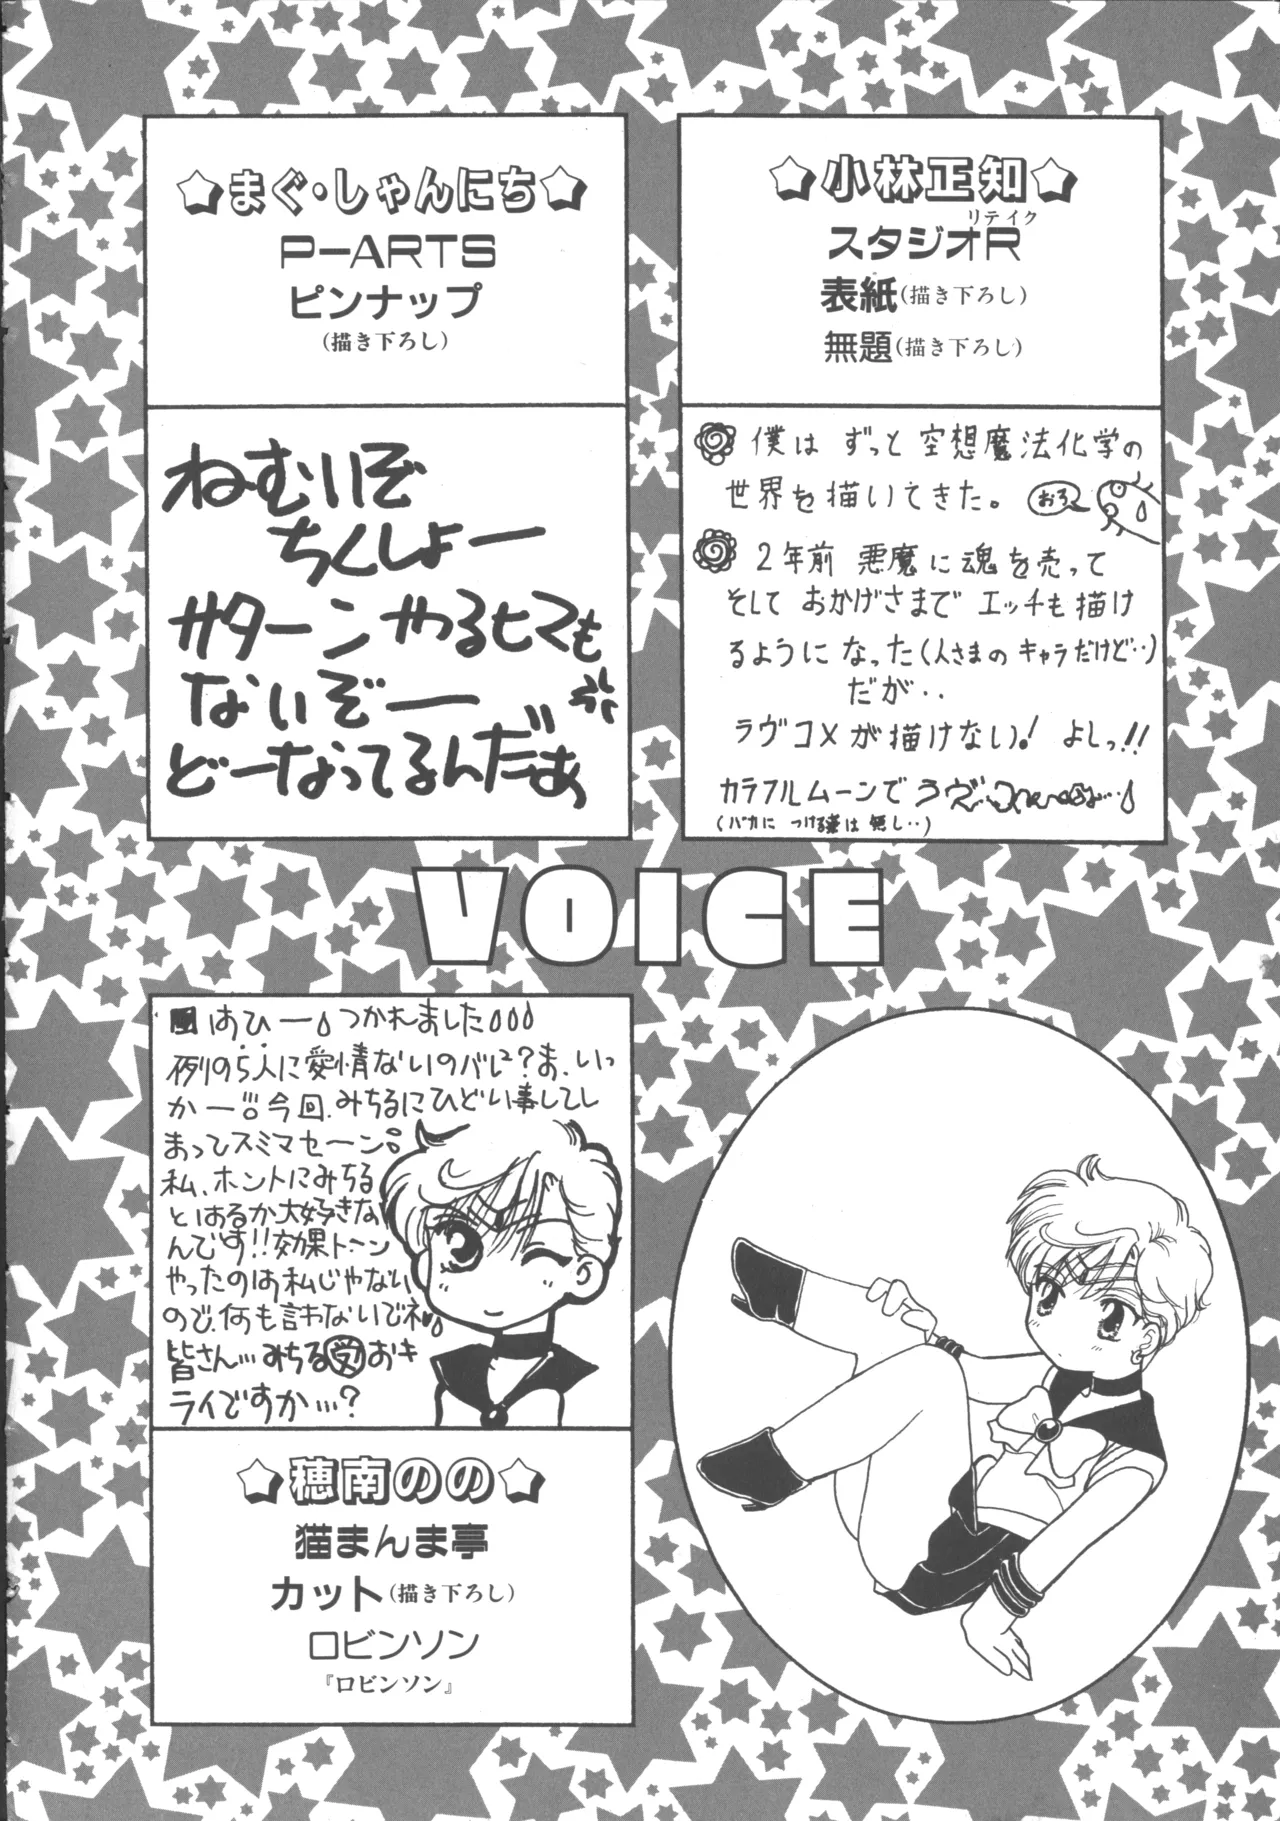 ☆まぐ・しゃんにち☆
P-ARTS
ピンナップ
(描き下ろし)
ねむいぞ
ちくしょー
サターンやるヒマも
ないぞー
どーなってるんだぁ
☆小林正知☆
リテイク
スタジオR
表紙(描き下ろし)
無題(描き下ろし)
僕は ずっと 空想魔法化学の
世界を描いてきた。
おろ
2年前 悪魔に魂を売って
そして おかげさまで エッチも描け
るようになった(人さまの キャラだけど‥)
だが‥
ラヴコメが描けない! よしっ!!
カラフルムーンで ラヴ
(バカに つける薬は 無し‥)
VOICE
はひー つかれました
例の5人に愛情ないのバレ?ま、いっ
かー!!今回、みちるにひどい事してし
まってスミマセーン。
私、ホントにみちる
とはるか大好きな
んです!!効果トーン
やったのは私じゃない
ので、何も言わないでネ
皆さん…みちる受おキ
ライですか…?
☆穂南のの☆
猫まんま亭
カット(描き下ろし)
ロビンソン
『ロビンソン』